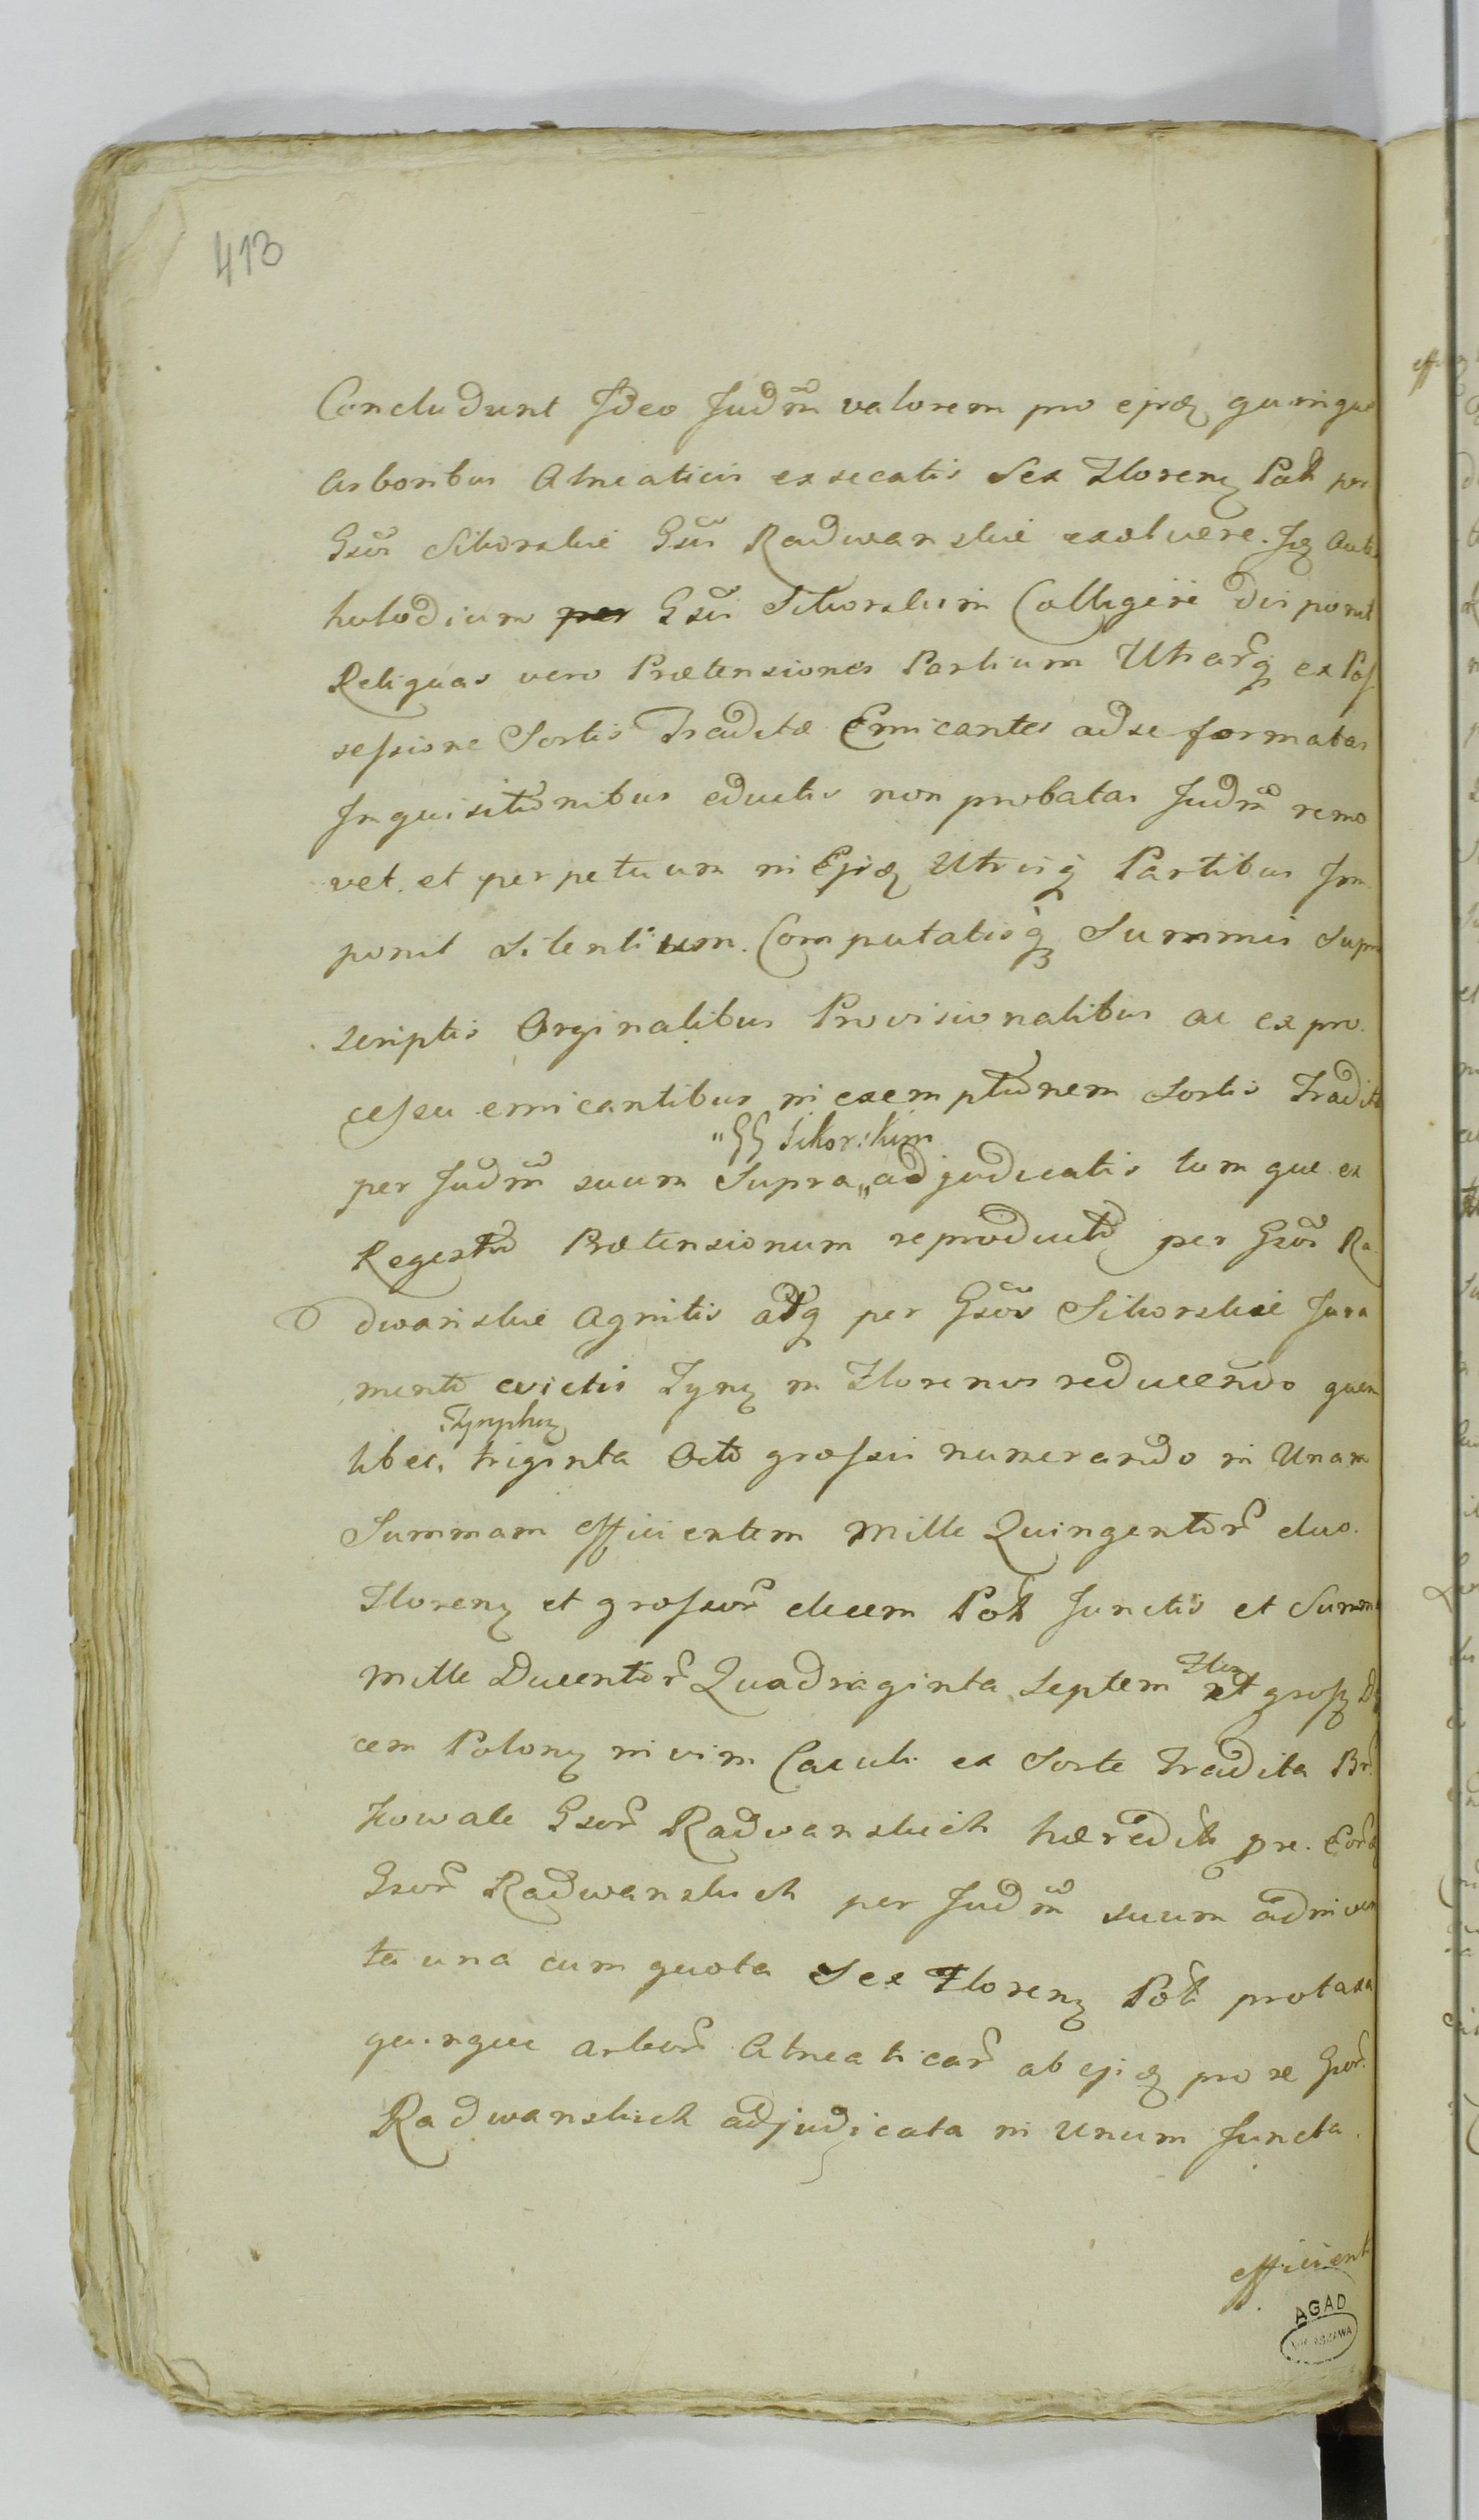 413
Concludunt Ideo Judm valorem pro ejsdq quinque
arboribus Alneaticis exsecatis Sex Florenq Pol per
Gsos Sikorskie Gsis Radwanskie exolvere. Iq Aute
hulodium per Gsis Sikorskim Colligere disponit
Reliquas vero Prætensiones Partium Utrarq ex Pos
sessione Sortis Traditæ Emicantes ad se formatas
Inquisitionibus eductis non probatas Judm remo
vet. et perpetuum in Ejsdq Utrisq Partibus Im
ponit silentium. Computatisq Summis Supra
scriptis Orginalibus Provisionalibus ac ex pro.
cessu emicantibus in exemptionem Sortis Tradit
" GG Sikorskim
per Judm suum Supra „ adjudicatis tum que ex
Regestro Prætensionum reproducto per Gsos Ra
dwanskie Agnitis adq per Gsos Sikorskie Jura
mento evictis Tynq in Florenos reducendo quem
Tynphuq
libet, triginta Octo grossis numerando in Unam
Summam efficientem Mille Quingentor duo.
Florenq et grossor decem Pol Junctis et Summa
Mille Ducentor Quadraginta Septem et grosq De
Flor
cem Polonq in vim Calculi ex Sorte Tradita Br
kowale Gsor Radwanskich hæredit pre. Eord
Gsor Radwanskich per Judm suum adinven
ta una cum quota Sex Florenq Pol pro taxa
quinque arbor Alneaticar ab ejsdq pro re Gsor.
Radwanskich adjudicata in Unum Juncta.
efficient
AGAD
WARSZAWA